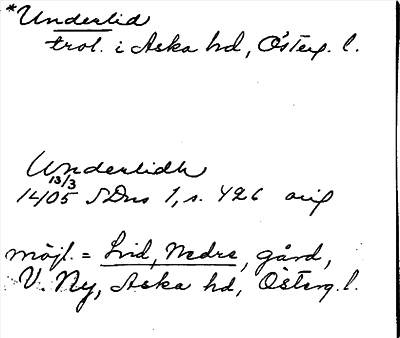 *Underlid
trol. i Aska hd, Österg. l.
Wnderlidh
13/3
1405 SDns 1, s. 426 orig
möjl. = Lid, Nedre, gård,
V. Ny, Aska hd, Österg. l.